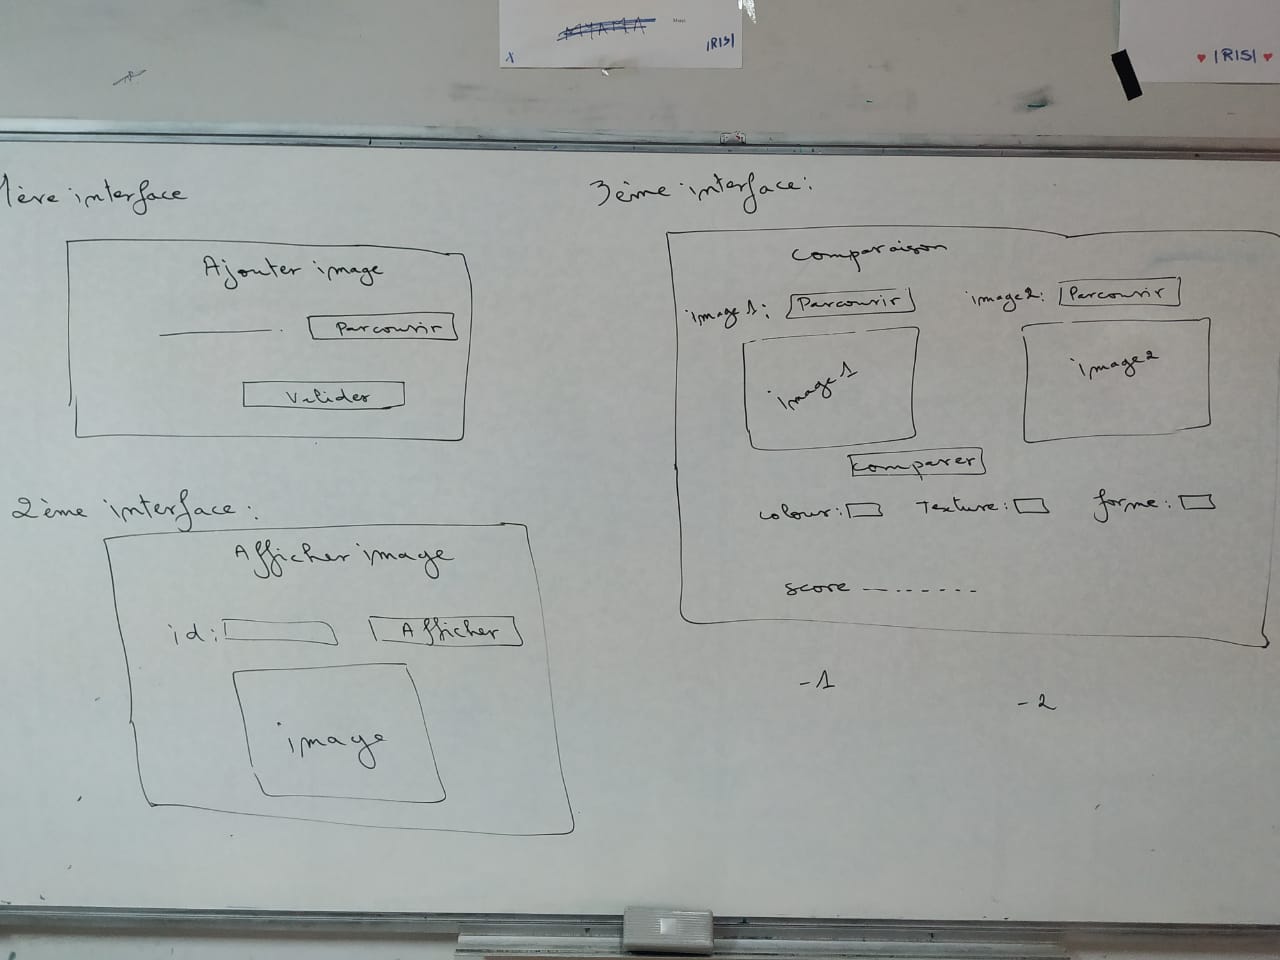 IRISI
IRISI
1ère interface
Ajouter image
Parcourir
Valider
2ème interface:
Afficher image
id:
Afficher
image
3ème interface:
Comparaison
image 1: Parcourir
image 2: Parcourir
image 1
image 2
Comparer
colour: Texture: forme:
score
-1
-2